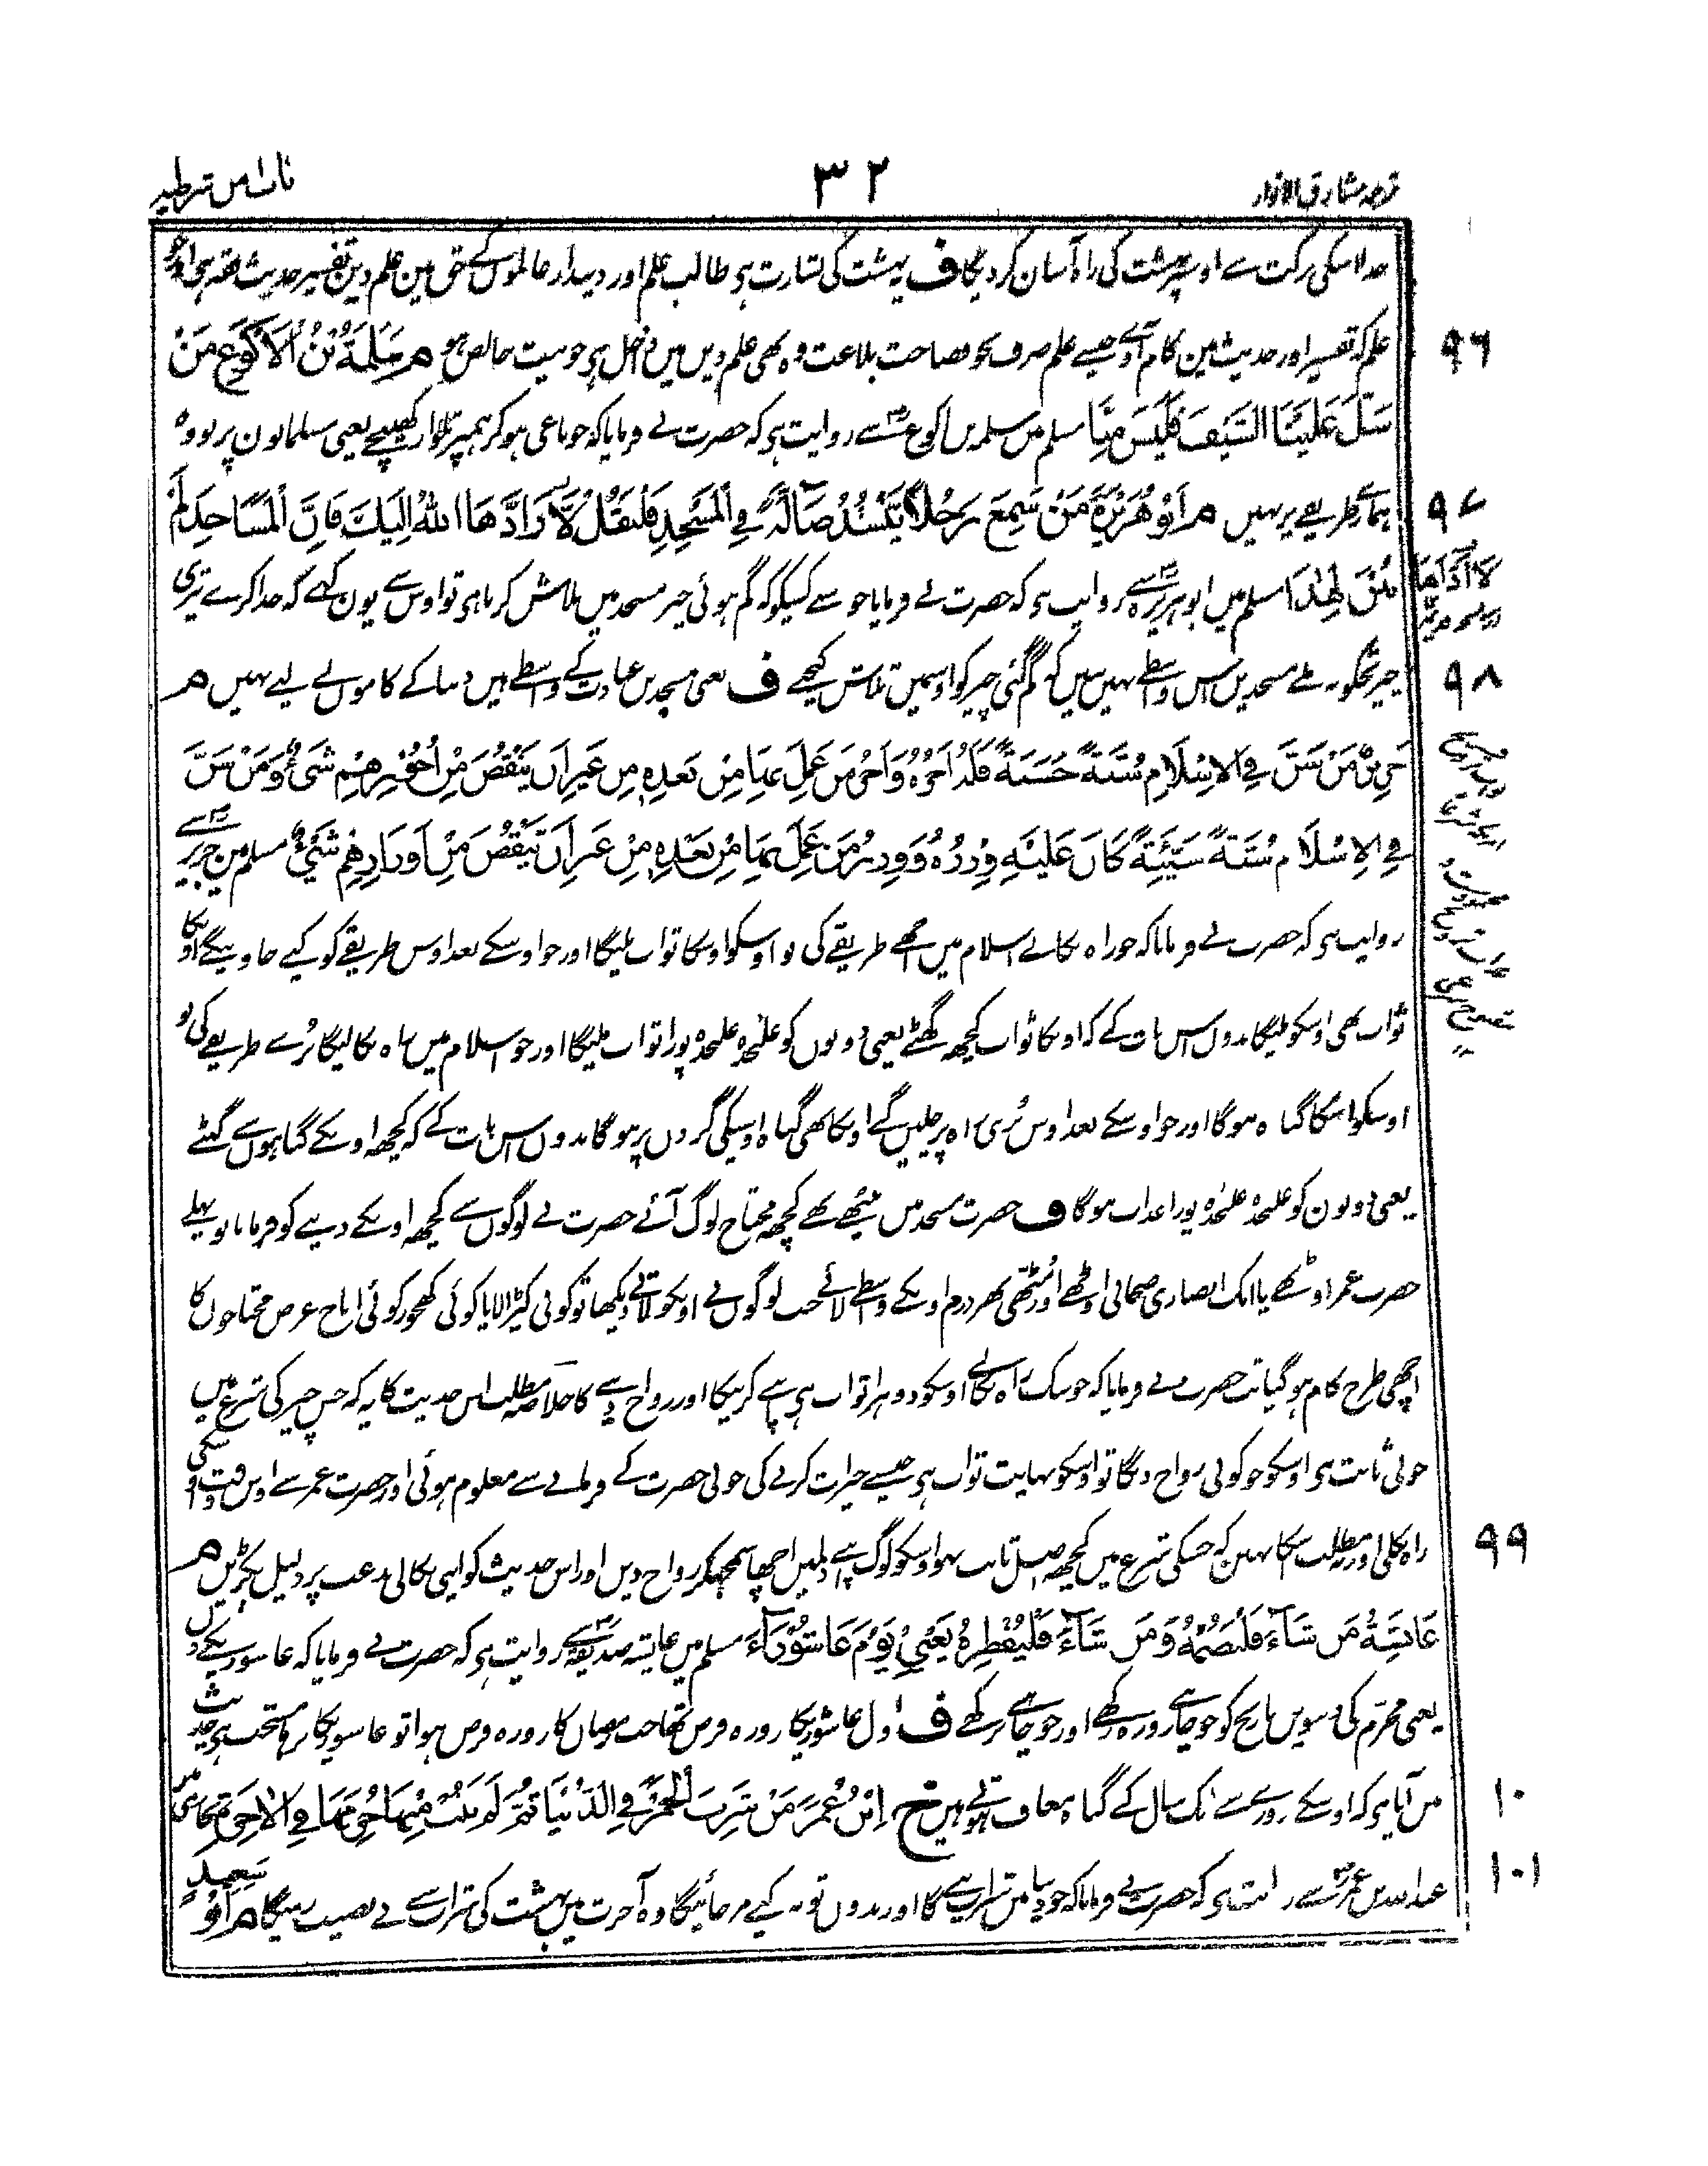 ترجمہ مشارق الانوار
۳۲
باب من شرطیہ
خدا اسکی برکت سے اوسپر بہشت کی راہ آسان کر دیگا ف بہشت کی بشارت ہی طالب علم اور دیندار عالموں کے حق مین علم دین تفسیر حدیث فقہ ہی اور جو
علم کہ تفسیر اور حدیث مین کام آوے جیسے علم صرف نحو فصاحت بلاغت وہ بھی علم دین میں داخل ہی جو نیت خالص ہو م سَلَمَةُ بْنُ الْاَكْوَعِ مَنْ
۹۶
سَلَّ عَلَيْنَا السَّيْفَ فَلَيْسَ مِنَّا مسلم میں سلمہ بن اکوع سے روایت ہی کہ حضرت نے فرمایا کہ جو باغی ہو کر ہمپر تلوار کھینچے یعنی مسلمانون پر تو وہ
ہمارے طریقے پر نہیں م اَبُوْ هُرَيْرَةَ مَنْ سَمِعَ رَجُلًا يَنْشُدُ ضَالَّةً فِي الْمَسْجِدِ فَلْيَقُلْ لَا رَادَّهَا اللهُ اِلَيْكَ فَاِنَّ الْمَسَاجِدَ لَمْ
۹۷
تُبْنَ لِهٰذَا مسلم میں ابو ہریرہ سے روایت ہی کہ حضرت نے فرمایا جو سنے کسیکو کہ گم ہوئی چیز مسجد میں تلاش کرتا ہی تو اوس سے یون کہے کہ خدا کرے تیری
چیز تجکو نہ ملے مسجدیں اس واسطے نہیں بنیں کہ گم گئی چیز کو اوسمیں تلاش کیجیے ف یعنی مسجدیں عبادت کے واسطے ہیں دنیا کے کاموں کے لیے نہیں م
۹۸
جَرِيْرٌ مَنْ سَنَّ فِي الْاِسْلَامِ سُنَّةً حَسَنَةً فَلَهٗ اَجْرُهٗ وَاَجْرُ مَنْ عَمِلَ بِهَا مِنْ بَعْدِهٖ مِنْ غَيْرِ اَنْ يَنْقُصَ مِنْ اُجُوْرِهِمْ شَيْءٌ وَمَنْ سَنَّ
فِي الْاِسْلَامِ سُنَّةً سَيِّئَةً كَانَ عَلَيْهِ وِزْرُهٗ وَوِزْرُ مَنْ عَمِلَ بِهَا مِنْ بَعْدِهٖ مِنْ غَيْرِ اَنْ يَنْقُصَ مِنْ اَوْزَارِهِمْ شَيْءٌ مسلم مین جریر سے
روایت ہی کہ حضرت نے فرمایا کہ جو راہ نکالے اسلام میں اچھے طریقے کی تو اوسکو اوسکا ثواب ملیگا اور جو اوسکے بعد اوس طریقے کو کیے جاوینگے اونکا
ثواب بھی اوسکو ملیگا بدون اس بات کے کہ اونکا ثواب کچھ گھٹے یعنی دونوں کو علٰحدہ علٰحدہ پورا ثواب ملیگا اور جو اسلام میں راہ نکالیگا بُرے طریقے کی تو
اوسکو اسکا گناہ ہوگا اور جو اوسکے بعد اوس بُری راہ پر چلیں گے اونکا بھی گناہ اوسکی گردن پر ہوگا بدون اس بات کے کہ کچھ اونکے گناہوں سے گھٹے
یعنی دونون کو علٰحدہ علٰحدہ پورا عذاب ہوگا ف حضرت مسجد میں بیٹھے تھے کچھ محتاج لوگ آئے حضرت نے لوگوں سے کچھ اونکے دینے کو فرمایا تو پہلے
حضرت عمر اوٹھے یا ایک انصاری صحابی اوٹھے اور مُٹھی بھر درم اونکے واسطے لائے جب لوگوں نے اونکو لاتے دیکھا تو کوئی کپڑا لایا کوئی کھجور کوئی اناج غرض محتاجوں کا
اچھی طرح کام ہوگیا تب حضرت نے فرمایا کہ جو نیک راہ نکالے اوسکو دوہرا ثواب ہی اپنے کرنیکا اور رواج دینے کا خلاصہ مطلب اس حدیث کا یہ کہ جس چیز کی شرع میں
خوبی ثابت ہی اوسکو جو کوئی رواج دیگا تو اوسکو نہایت ثواب ہی جیسے خیرات کرنے کی خوبی حضرت کے فرمانے سے معلوم ہوئی اور حضرت عمر سے اوس وقت اوسکی
راہ نکلی اور یہ مطلب اسکا نہین کہ جسکی شرع میں کچھ اصل ثابت نہو اوسکو لوگ اپنے دلمیں اچھا سمجھکر رواج دیں اور اس حدیث کو اپنی نکالی بدعت پر دلیل پکڑیں م
۹۹
عَايِشَةُ مَنْ شَآءَ فَلْيَصُمْهُ وَمَنْ شَآءَ فَلْيُفْطِرْهُ يَعْنِيْ يَوْمَ عَاشُوْرَآءَ مسلم میں عایشہ صدیقہ سے روایت ہی کہ حضرت نے فرمایا کہ عاشوریکے دن
یعنی محرّم کی دسویں تاریخ کو جو چاہے روزہ رکھے اور جو چاہے نرکھے ف اول عاشوریکا روزہ فرض تھا جب رمضان کا روزہ فرض ہوا تو عاشوریکا رہا مستحب ہی حدیث
میں آیا ہی کہ اوسکے روزے سے ایک سال کے گناہ معاف ہوتے ہیں خ اِبْنُ عُمَرَ مَنْ شَرِبَ الْخَمْرَ فِي الدُّنْيَا ثُمَّ لَمْ يَتُبْ مِنْهَا حُرِمَهَا فِي الْاٰخِرَةِ بخاری میں
۱۰
عبداللہ بن عمر سے روایت ہی کہ حضرت نے فرمایا کہ جو دنیا میں شراب پیے گا اور بدون توبہ کیے مرجائیگا وہ آخرت میں بہشت کی شراب سے بے نصیب رہیگا م اَبُوْ سَعِيْدٍ
۱۰۱